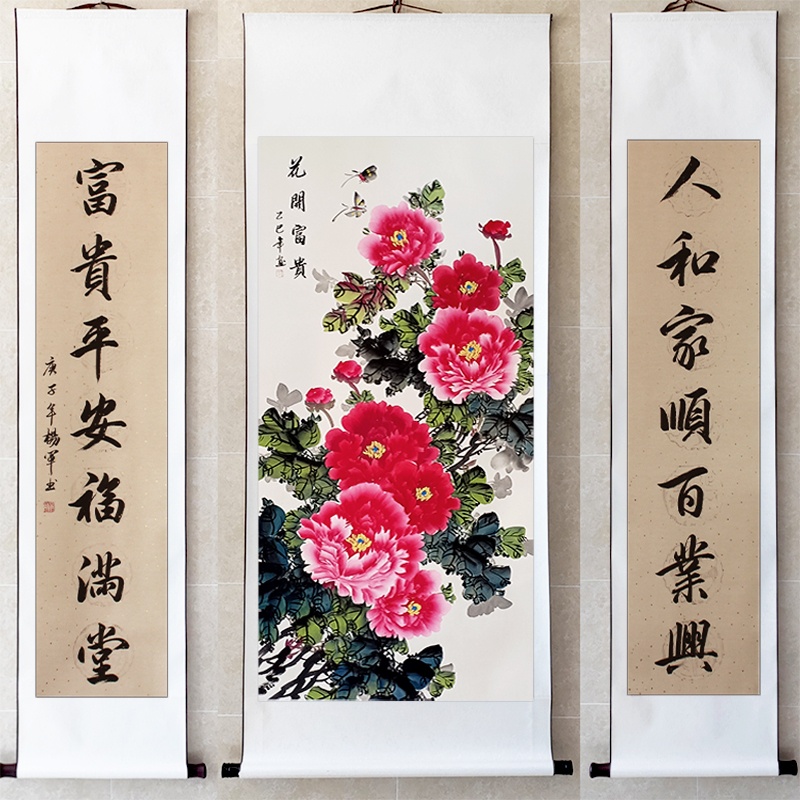 人和家順百業興
花開富貴
乙巳年画
富貴平安福满堂
庚子年楊軍书